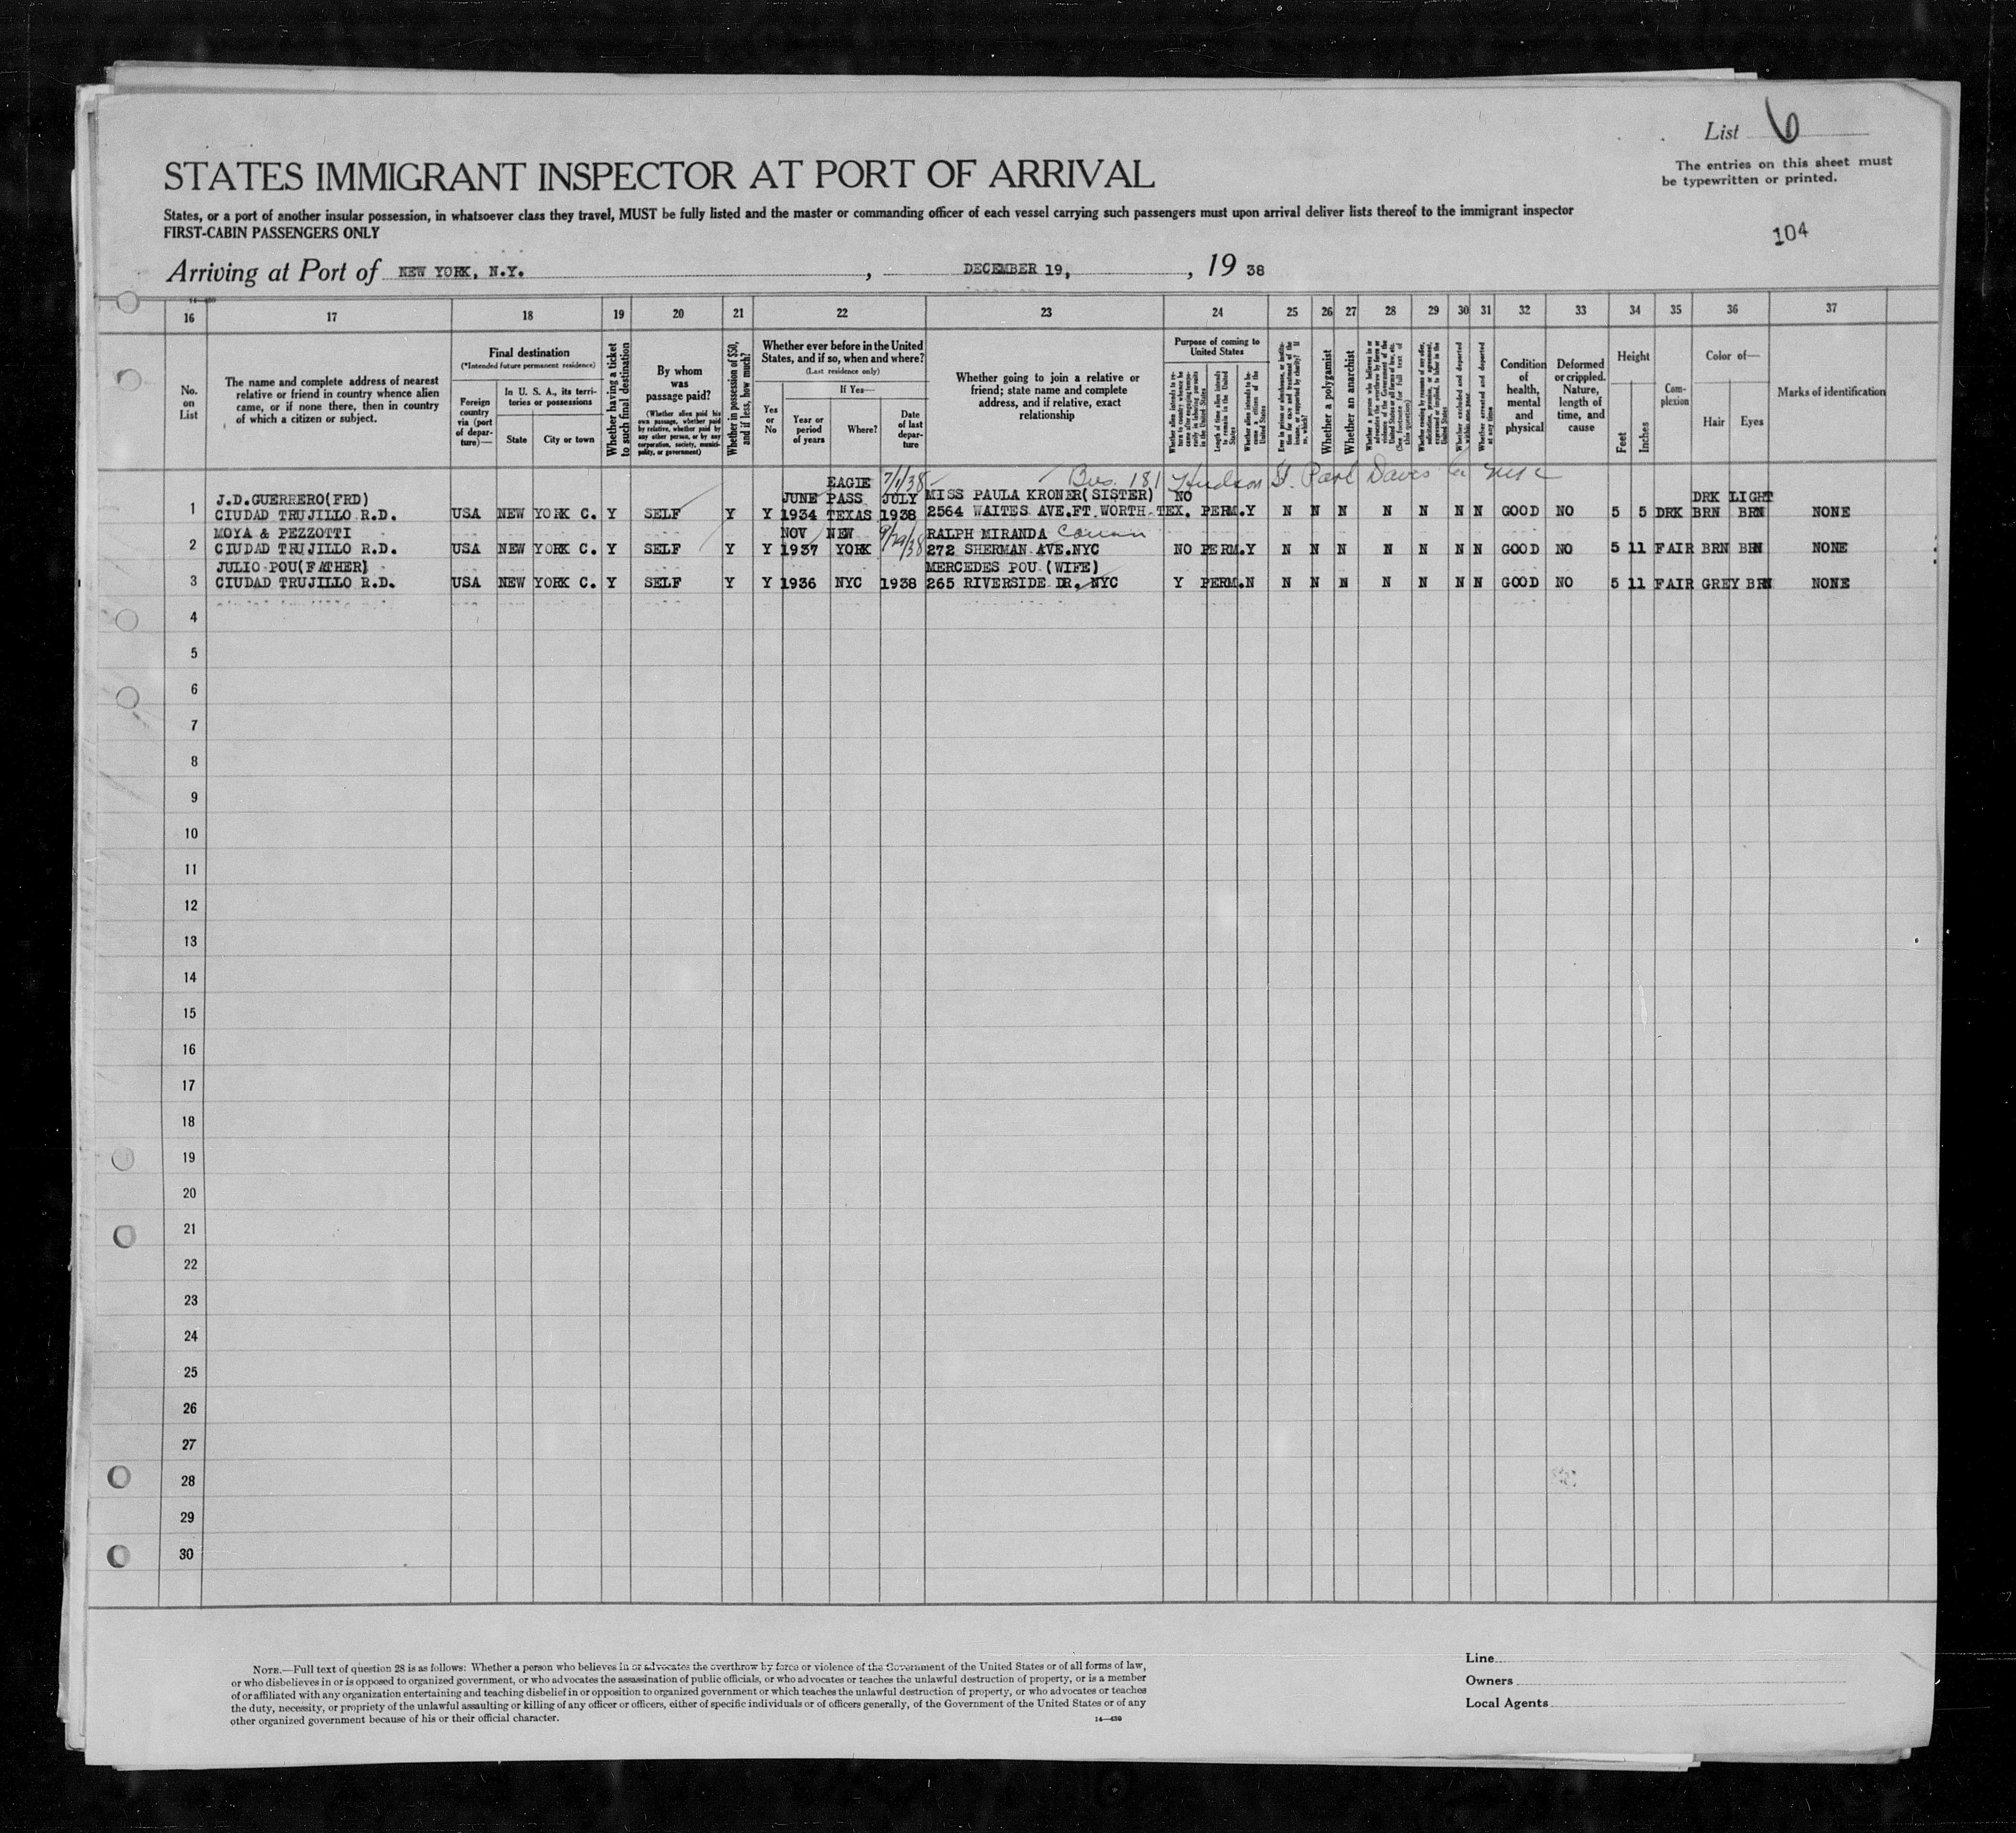 List 6
The entries on this sheet must
be typewritten or printed.
STATES IMMIGRANT INSPECTOR AT PORT OF ARRIVAL
States, or a port of another insular possession, in whatsoever class they travel, MUST be fully listed and the master or commanding officer of each vessel carrying such passengers must upon arrival deliver lists thereof to the immigrant inspector
FIRST-CABIN PASSENGERS ONLY
104
Arriving at Port of NEW YORK, N.Y. , DECEMBER 19, , 19 38
16 17 18 19 20 21 22 23 24 25 26 27 28 29 30 31 32 33 34 35 36 37
No. on List
The name and complete address of nearest relative or friend in country whence alien came, or if none there, then in country of which a citizen or subject.
Final destination
(*Intended future permanent residence)
Foreign country via (port of departure)—
In U. S. A., its territories or possessions
State
City or town
Whether having a ticket to such final destination
By whom was passage paid?
(Whether alien paid his own passage, whether paid by relative, whether paid by any other person, or by any corporation, society, municipality, or government)
Whether in possession of $50, and if less, how much?
Whether ever before in the United States, and if so, when and where?
(Last residence only)
Yes or No
If Yes—
Year or period of years
Where?
Date of last departure
Whether going to join a relative or friend; state name and complete address, and if relative, exact relationship
Purpose of coming to United States
Length of time alien intends to remain in the United States
Whether alien intends to become a citizen of the United States
Whether a polygamist
Whether an anarchist
Whether arrested and deported at any time
Condition of health, mental and physical
Deformed or crippled. Nature, length of time, and cause
Height
Feet
Inches
Complexion
Color of—
Hair
Eyes
Marks of identification
EAGLE 7/1/38 Bus. 181 Hudson St. Park Davis Co NYC
1 J.D.GUERRERO(FRD) JUNE PASS JULY MISS PAULA KRONER(SISTER) NO DRK LIGHT
CIUDAD TRUJILLO R.D. USA NEW YORK C. Y SELF Y Y 1934 TEXAS 1938 2564 WAITES AVE.FT.WORTH-TEX. PERM.Y N N N N N N N GOOD NO 5 5 DRK BRN BRN NONE
2 MOYA & PEZZOTTI NOV NEW 9/29/38 RALPH MIRANDA Cousin
CIUDAD TRUJILLO R.D. USA NEW YORK C. Y SELF Y Y 1937 YORK 272 SHERMAN AVE.NYC NO PERM.Y N N N N N N N GOOD NO 5 11 FAIR BRN BRN NONE
JULIO POU(FATHER) MERCEDES POU (WIFE)
3 CIUDAD TRUJILLO R.D. USA NEW YORK C. Y SELF Y Y 1936 NYC 1938 265 RIVERSIDE DR. NYC Y PERM.N N N N N N N N GOOD NO 5 11 FAIR GREY BRN NONE
4
5
6
7
8
9
10
11
12
13
14
15
16
17
18
19
20
21
22
23
24
25
26
27
28
29
30
NOTE.—Full text of question 28 is as follows: Whether a person who believes in or advocates the overthrow by force or violence of the Government of the United States or of all forms of law,
or who disbelieves in or is opposed to organized government, or who advocates the assassination of public officials, or who advocates or teaches the unlawful destruction of property, or is a member
of or affiliated with any organization entertaining and teaching disbelief in or opposition to organized government or which teaches the unlawful destruction of property, or who advocates or teaches
the duty, necessity, or propriety of the unlawful assaulting or killing of any officer or officers, either of specific individuals or of officers generally, of the Government of the United States or of any
other organized government because of his or their official character.
14—430
Line
Owners
Local Agents